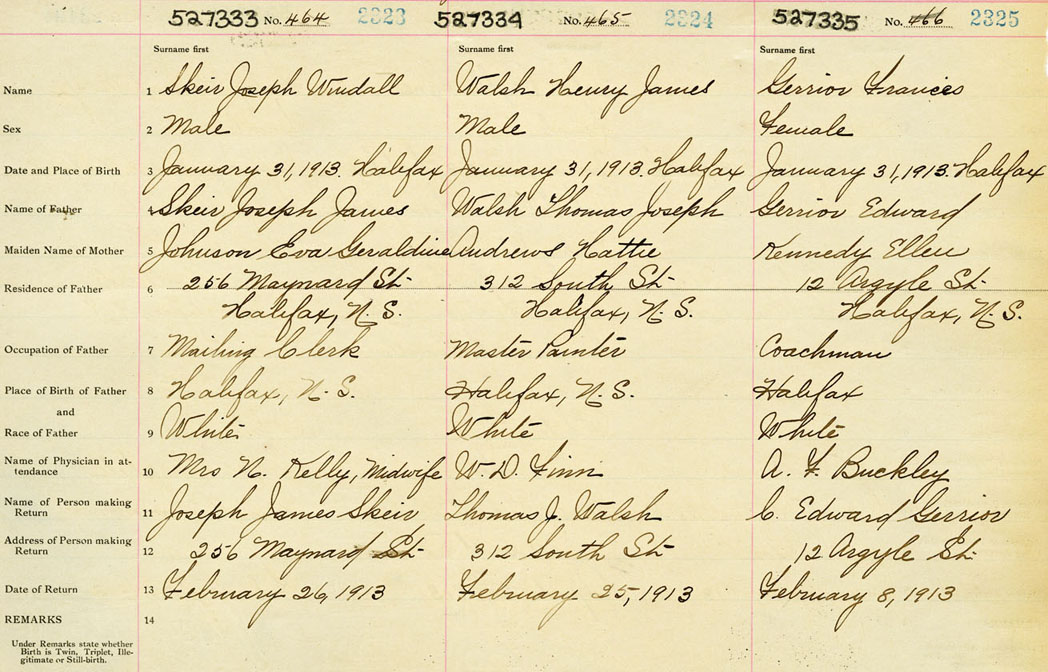 527333 No. 464 2323 527334 No. 465 2324 527335 No. 466 2325
Surname first Surname first Surname first
Name 1 Skeir Joseph Windall Walsh Henry James Gerrior Frances
Sex 2 Male Male Female
Date and Place of Birth 3 January 31, 1913. Halifax January 31, 1913. Halifax January 31, 1913. Halifax
Name of Father 4 Skeir Joseph James Walsh Thomas Joseph Gerrior Edward
Maiden Name of Mother 5 Johnson Eva Geraldine Andrews Hattie Kennedy Ellen
Residence of Father 6 256 Maynard St. 312 South St. 12 Argyle St.
Halifax, N.S. Halifax, N.S. Halifax, N.S.
Occupation of Father 7 Mailing Clerk Master Painter Coachman
Place of Birth of Father 8 Halifax, N.S. Halifax, N.S. Halifax
and
Race of Father 9 White White White
Name of Physician in at-
tendance 10 Mrs N. Kelly, Midwife W. D. Finn A. F. Buckley
Name of Person making
Return 11 Joseph James Skeir Thomas J. Walsh C. Edward Gerrior
Address of Person making
Return 12 256 Maynard St. 312 South St. 12 Argyle St.
Date of Return 13 February 26, 1913 February 25, 1913 February 8, 1913
REMARKS 14
Under Remarks state whether
Birth is Twin, Triplet, Ille-
gitimate or Still-birth.